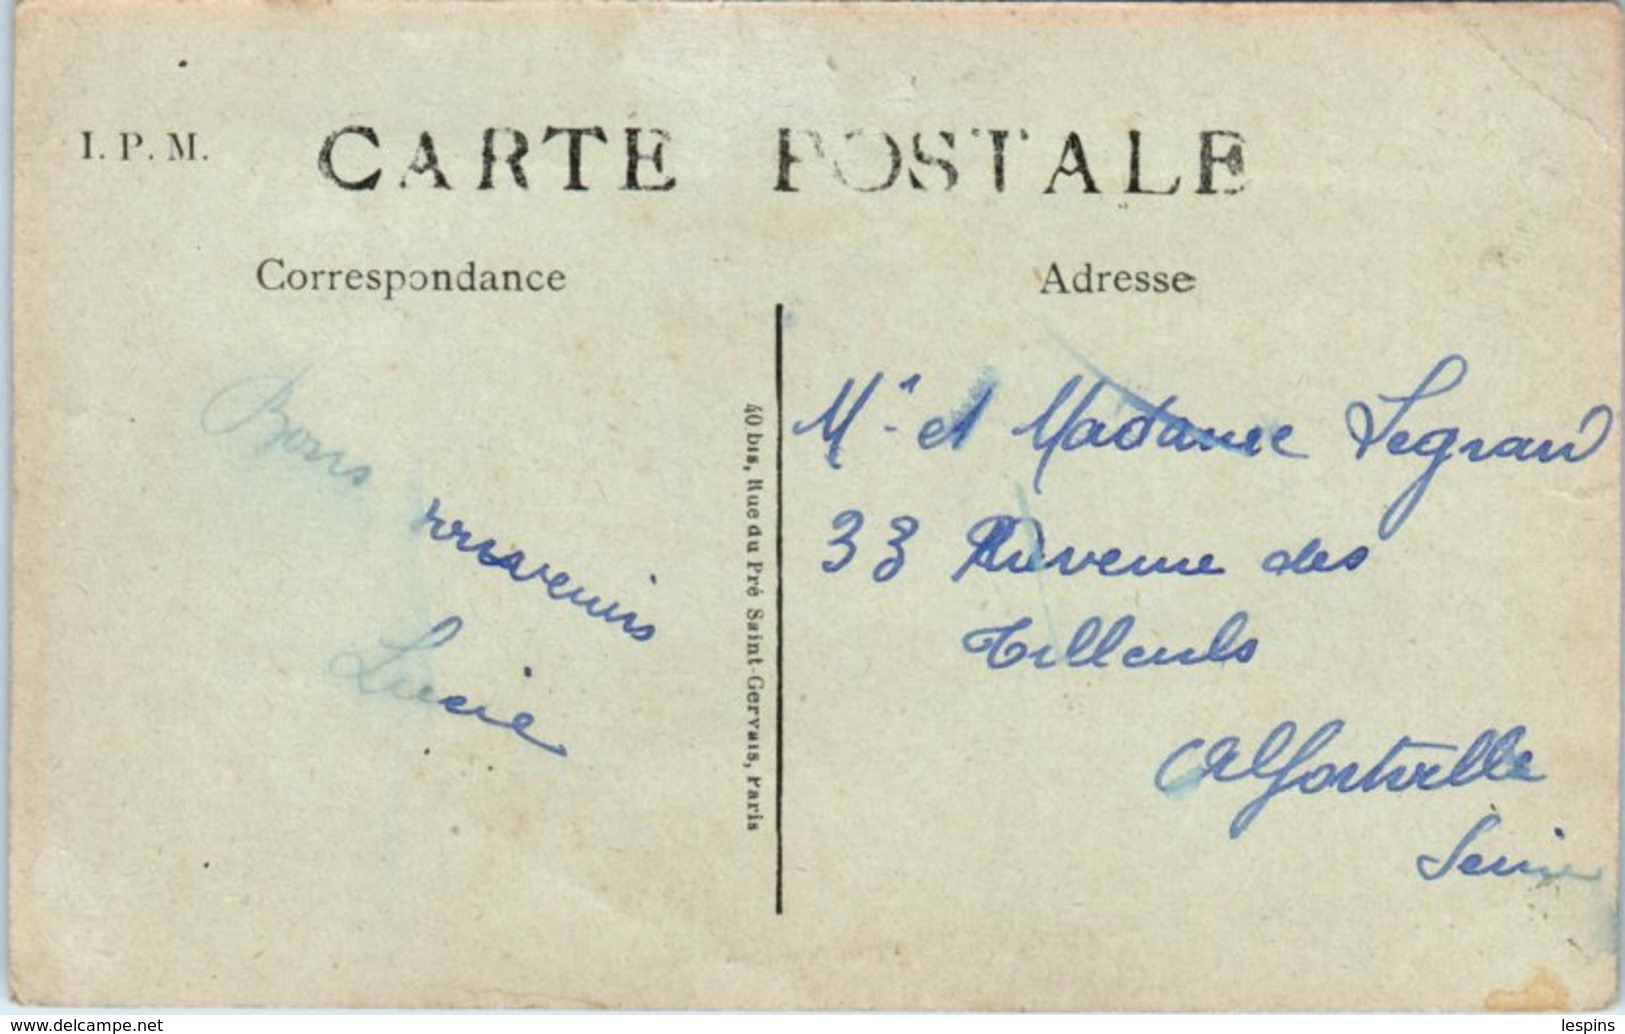 I. P. M.
CARTE POSTALE
Correspondance
Adresse
Bons
souvenirs
Lucie
40 bis, Rue du Pré Saint-Gervais, Paris
Mr. et Madame Legrand
33 Avenue des
Tilleuls
Alfortville
Seine
www.delcampe.net
lespins